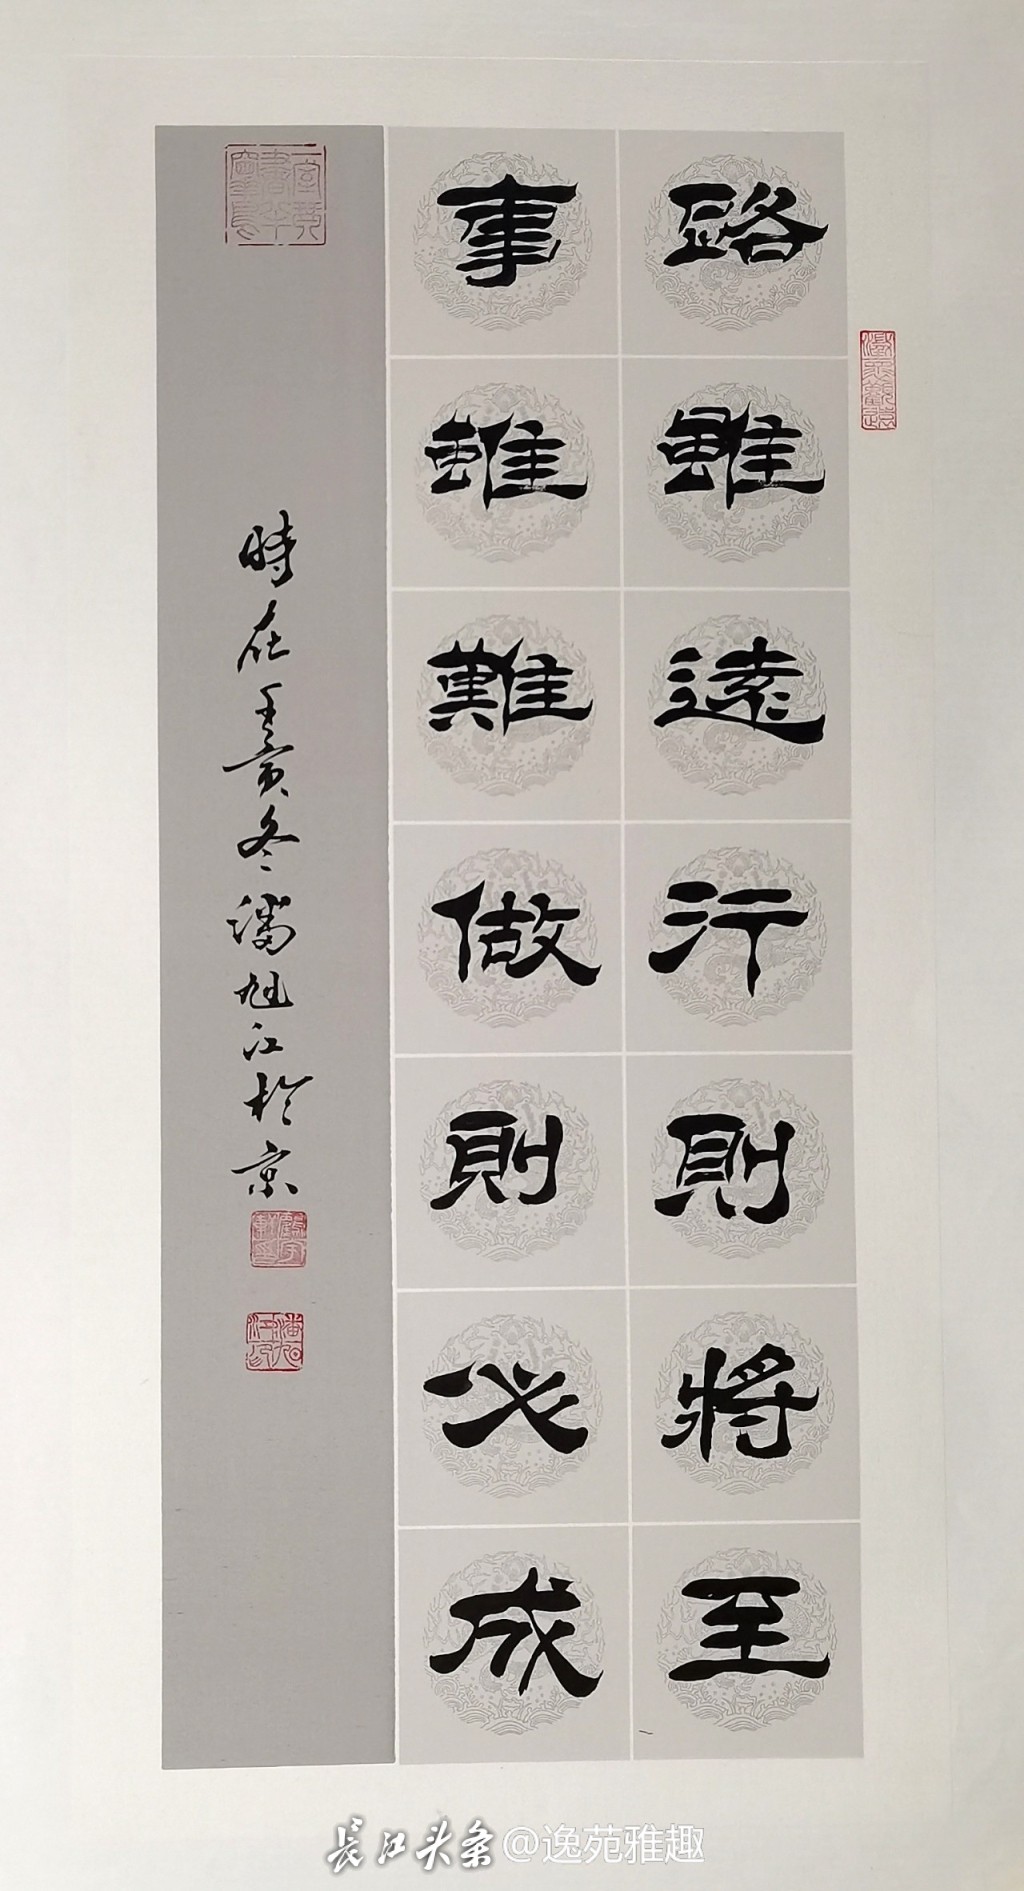 路雖遠行則將至
事雖難做則必成
時在壬寅冬潘旭江於京
長江头条@逸苑雅趣